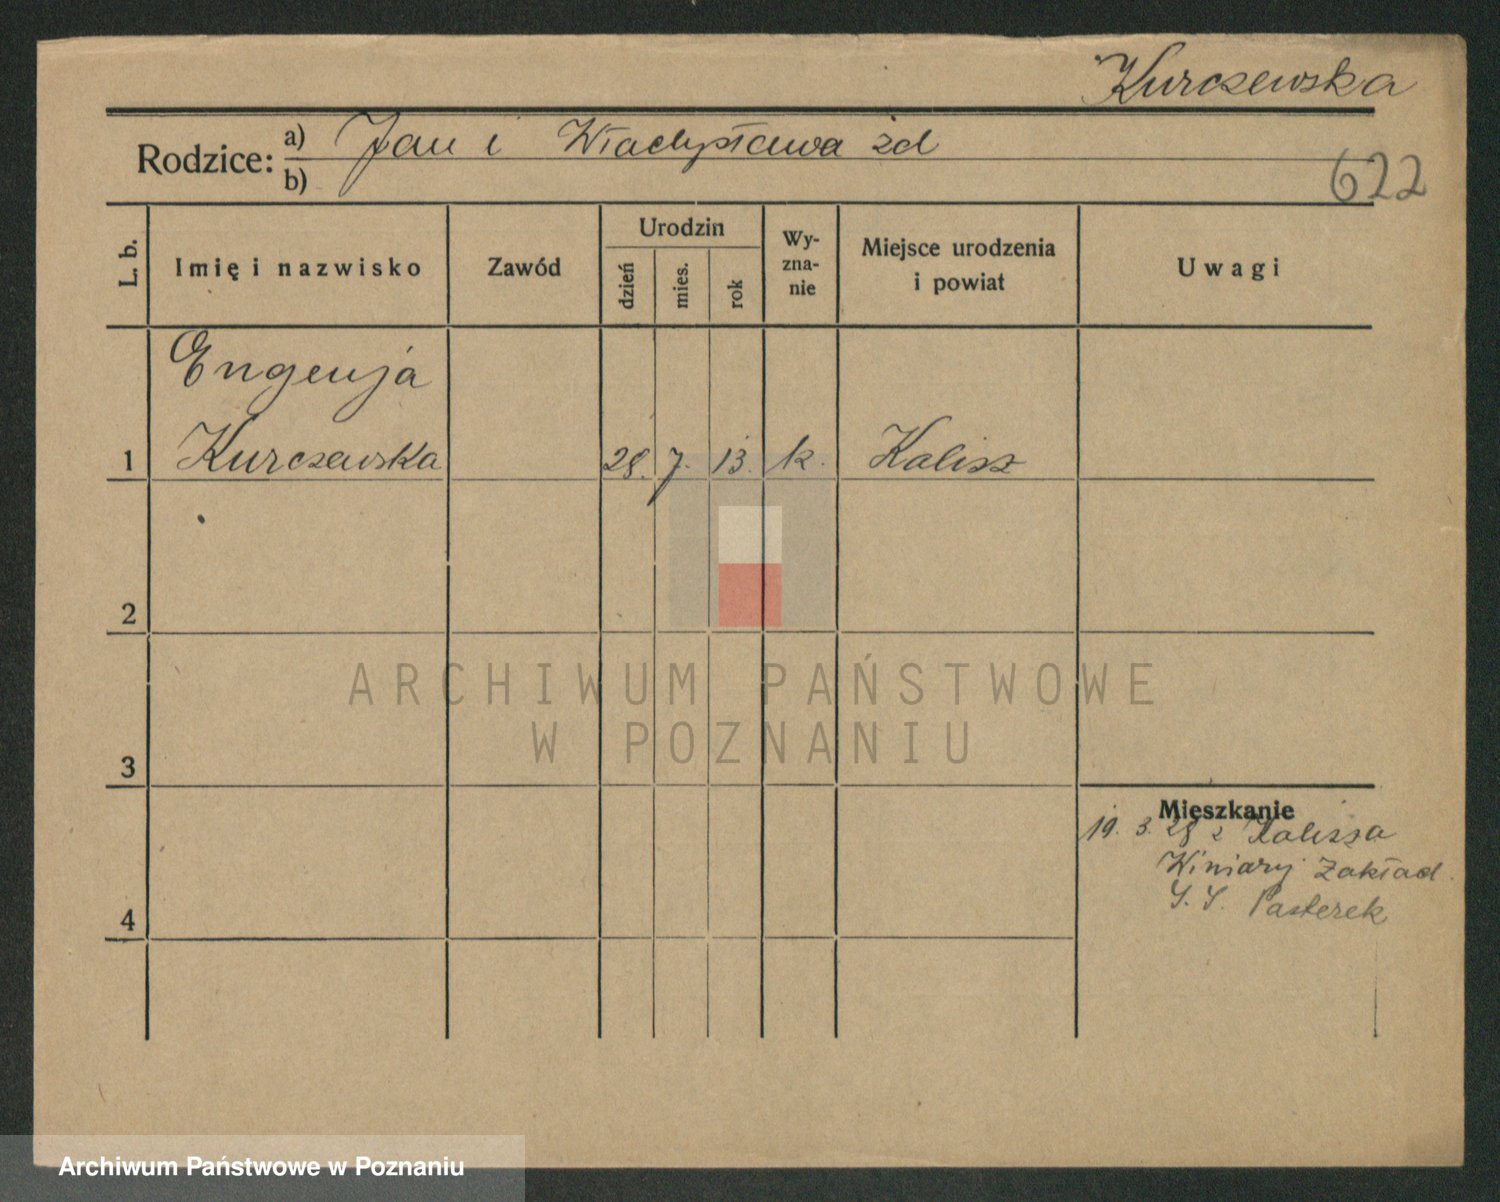 Kurczewska
Rodzice: a) Jan i Władysława żd
b)
622
L. b.
Imię i nazwisko
Zawód
Urodzin
dzień
mies.
rok
Wy-
zna-
nie
Miejsce urodzenia
i powiat
Uwagi
Eugenja
1 Kurczewska 28. 7. 13. k. Kalisz
2
3
4
Mieszkanie
19. 3. 28 z Kalisza
Winiary Zakład.
S. S. Pasterek
ARCHIWUM PAŃSTWOWE
W POZNANIU
Archiwum Państwowe w Poznaniu